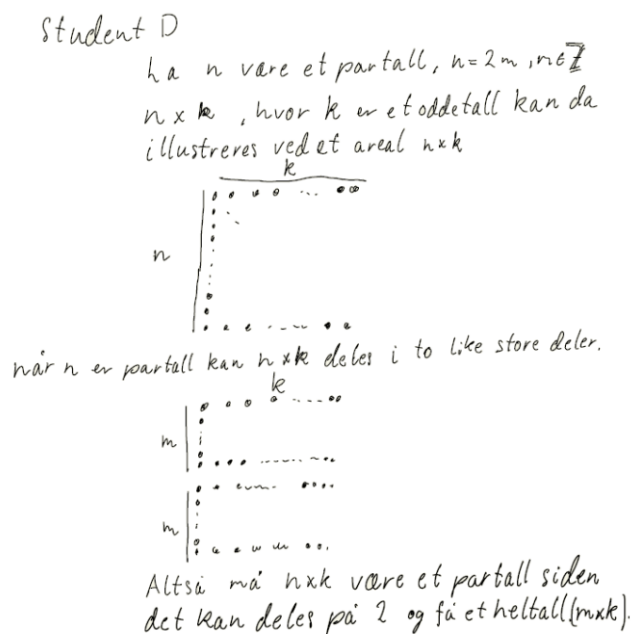 Student D
La n være et partall, n=2m, m∈ℤ
n×k, hvor k er et oddetall kan da
illustreres ved et areal n×k
k
n
når n er partall kan n×k deles i to like store deler.
k
m
m
Altså må n×k være et partall siden
det kan deles på 2 og få et heltall (m×k).